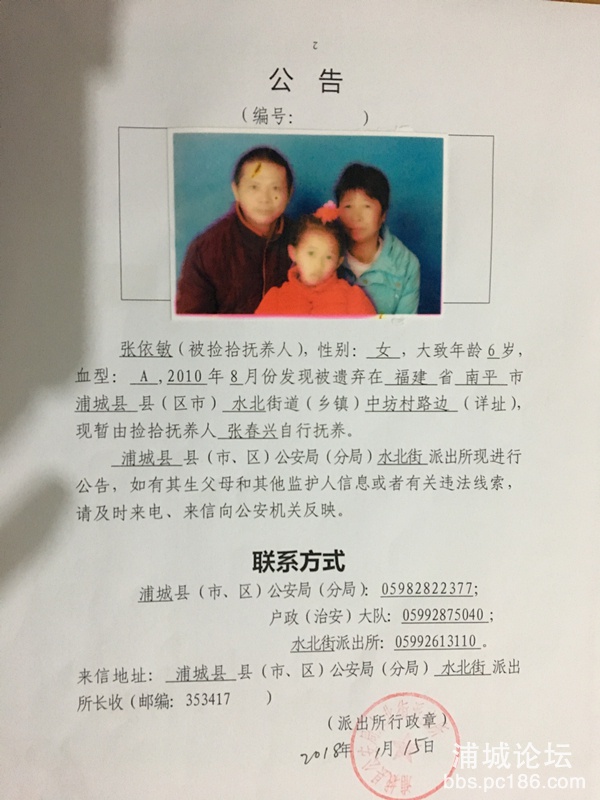 2
公 告
（编号：          ）
张依敏（被捡拾抚养人），性别： 女 ，大致年龄 6 岁，
血型： A ,2010 年 8 月份发现被遗弃在 福建 省 南平 市
浦城县 县（区市） 水北街道（乡镇）中坊村路边（详址），
现暂由捡拾抚养人 张春兴自行抚养。
浦城县 县（市、区）公安局（分局）水北街 派出所现进行
公告，如有其生父母和其他监护人信息或者有关违法线索，
请及时来电、来信向公安机关反映。
联系方式
浦城县（市、区）公安局（分局）：05982822377；
户政（治安）大队：05992875040；
水北街派出所：05992613110。
来信地址： 浦城县 县（市、区）公安局（分局）水北街 派出
所长收（邮编：353417     ）
（派出所行政章）
2018年 1月 15日
浦城论坛
bbs.pc186.com